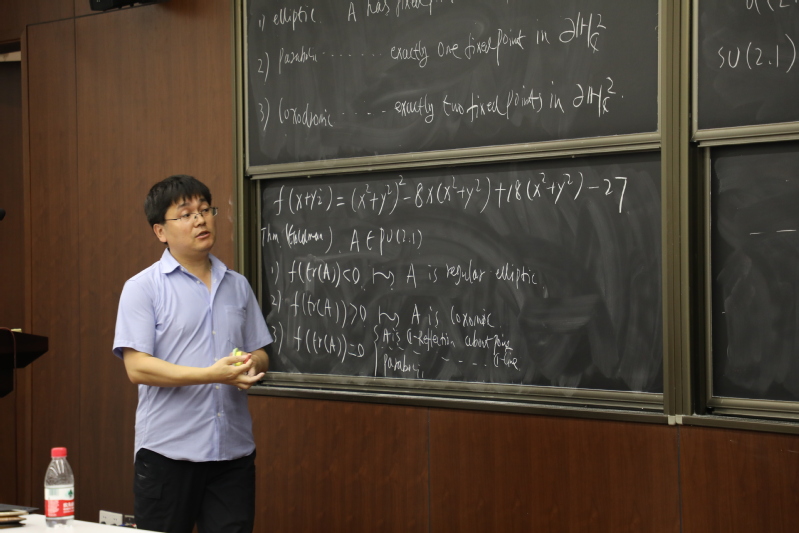 1) elliptic. A has fixed
2) Parabolic ...... exactly one fixed point in ∂H²_C
SU(2.1)
3) Loxodromic ..... exactly two fixed points in ∂H²_C.
f(x+yi) = (x²+y²)² - 8x(x²+y²) + 18(x²+y²) - 27
Thm (Goldman). A ∈ PU(2.1)
1) f(tr(A)) < 0 ⇝ A is regular elliptic.
2) f(tr(A)) > 0 ⇝ A is loxomic.
3) f(tr(A)) = 0 { A is C-Reflection about point
.... C-line
Parabolic.